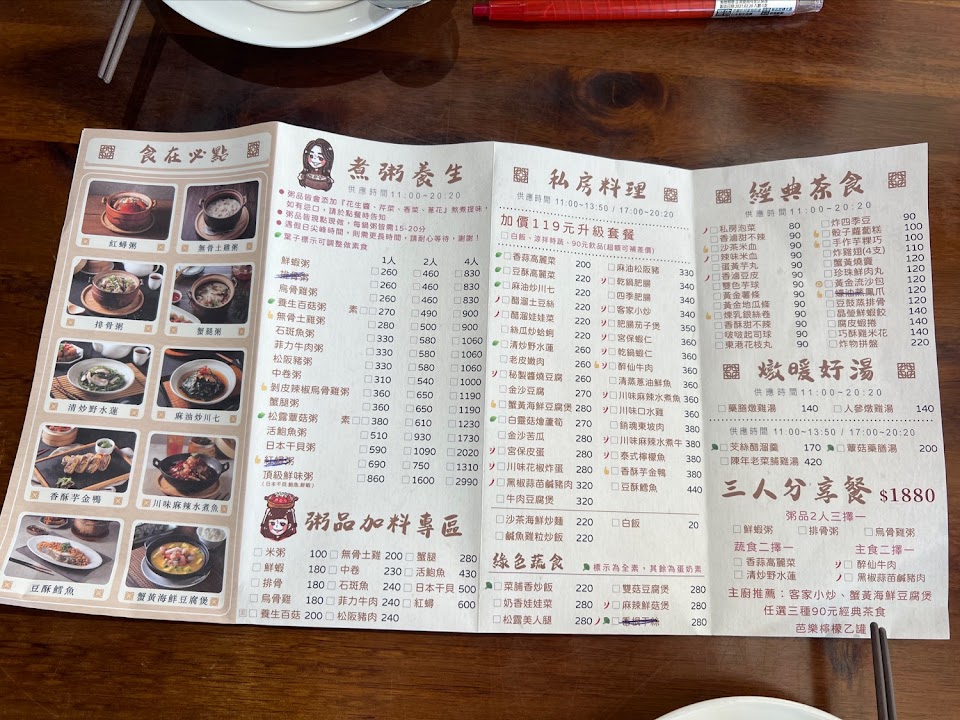 食在必點
紅蟳粥
無骨土雞粥
排骨粥
蟹腿粥
清炒野水蓮
麻油炒川七
香酥芋金鴨
川味麻辣水煮魚
豆酥鱈魚
蟹黃海鮮豆腐煲
煮粥養生
供應時間11:00~20:20
粥品皆會添加『花生醬、芹菜、香菜、薏花』熬煮提味，
如有忌口，請於點餐時告知
粥品皆現點現做，每鍋粥皆需15-20分
遇假日尖峰時間，則需更長時間，請耐心等待，謝謝！
葉子標示可調整做素食
1人 2人 4人
鮮蝦粥 260 460 830
排骨粥 260 460 830
烏骨雞粥 260 460 830
養生百菇粥 素 270 490 900
無骨土雞粥 280 500 900
石斑魚粥 330 580 1060
菲力牛肉粥 330 580 1060
松阪豬粥 330 580 1060
中卷粥 310 540 1000
剝皮辣椒烏骨雞粥 360 650 1190
蟹腿粥 360 650 1190
松露蕈菇粥 素 380 610 1230
活鮑魚粥 510 930 1730
日本干貝粥 590 1090 2020
紅蟳粥 690 750 1310
頂級鮮味粥 860 1600 2990
粥品加料專區
米粥 100 無骨土雞 200 蟹腿 280
鮮蝦 180 中卷 230 活鮑魚 430
排骨 180 石斑魚 240 日本干貝 500
烏骨雞 180 菲力牛肉 240 紅蟳 600
養生百菇 200 松阪豬肉 240
私房料理
供應時間 11:00~13:50 / 17:00~20:20
加價119元升級套餐
白飯、涼拌時蔬、90元飲品(超額可補差價)
香蒜高麗菜 200
豆酥高麗菜 220
麻油炒川七 220
醋溜土豆絲 220
醋溜娃娃菜 220
絲瓜炒蛤蜊 220
清炒野水蓮 260
老皮嫩肉 260
秘製醬燒豆腐 260
金沙豆腐 260
蟹黃海鮮豆腐煲 280
白靈菇燴蘆筍 280
金沙苦瓜 280
宮保皮蛋 280
川味花椒炸蛋 280
黑椒蒜苗鹹豬肉 320
牛肉豆腐煲 320
麻油松阪豬 330
乾鍋肥腸 340
四季肥腸 340
客家小炒 340
肥腸茄子煲 350
宮保蝦仁 360
乾鍋蝦仁 360
醉仙牛肉 360
清蒸蔥油鮮魚 360
川味麻辣水煮魚 360
川味口水雞 360
銷魂東坡肉 380
川味麻辣水煮牛 380
泰式檸檬魚 380
香酥芋金鴨 380
豆酥鱈魚 440
沙茶海鮮炒麵 220 白飯 20
鹹魚雞粒炒飯 220
綠色蔬食
標示為全素，其餘為蛋奶素
菜脯香炒飯 220 雙菇豆腐煲 280
奶香娃娃菜 260 麻辣鮮菇煲 280
松露美人腿 280 280
經典茶食
供應時間11:00~20:20
私房泡菜 80
香滷甜不辣 90
沙茶米血 90
辣味米血 90
蛋黃芋丸 90
香滷豆皮 90
雙色芋球 90
黃金薯條 90
黃金地瓜條 90
煉乳銀絲卷 90
香酥甜不辣 90
啵啵起司球 90
東港花枝丸 90
炸四季豆 90
骰子蘿蔔糕 90
手作芋粿巧 100
炸雞翅(4支) 110
蟹黃燒賣 120
珍珠鮮肉丸 120
黃金流沙包 120
蠔油蒸鳳爪 120
豉汁蒸排骨 120
晶瑩鮮蝦餃 140
腐皮蝦捲 140
巧酥雞米花 140
炸物拼盤 220
燉暖好湯
供應時間11:00~20:20
藥膳燉雞湯 140 人參燉雞湯 140
供應時間 11:00~13:50/ 17:00~20:20
芡絲醋溜羹 170 蕈菇藥膳湯 200
陳年老菜脯雞湯 420
三人分享餐 $1880
粥品2人三擇一
鮮蝦粥 排骨粥 烏骨雞粥
蔬食二擇一 主食二擇一
香蒜高麗菜 醉仙牛肉
清炒野水蓮 黑椒蒜苗鹹豬肉
主廚推薦：客家小炒、蟹黃海鮮豆腐煲
任選三種90元經典茶食
芭樂檸檬乙罐